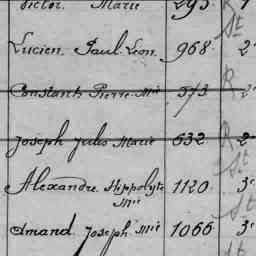 Victor. Marie 293 R 1
St
Lucien. Paul. Léon. 968 2e
R
Constant Pierre Mie 573 2e
Joseph Jules Marie 632 R 2
St
Alexandre. Hippolyte 1120. 3e
Mie St
Amand. Joseph Mie 1066 3e
St